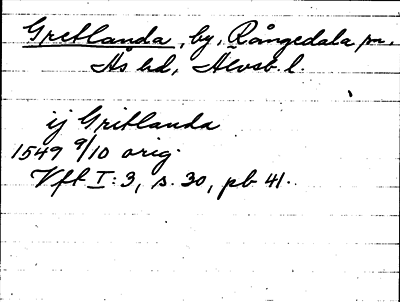 Gretlanda, by, Rångedala sn,
Ås hd, Älvsb. l.
ij Gritlanda
1549 9/10 orig.
Vft I:3, s. 30, pb 41.